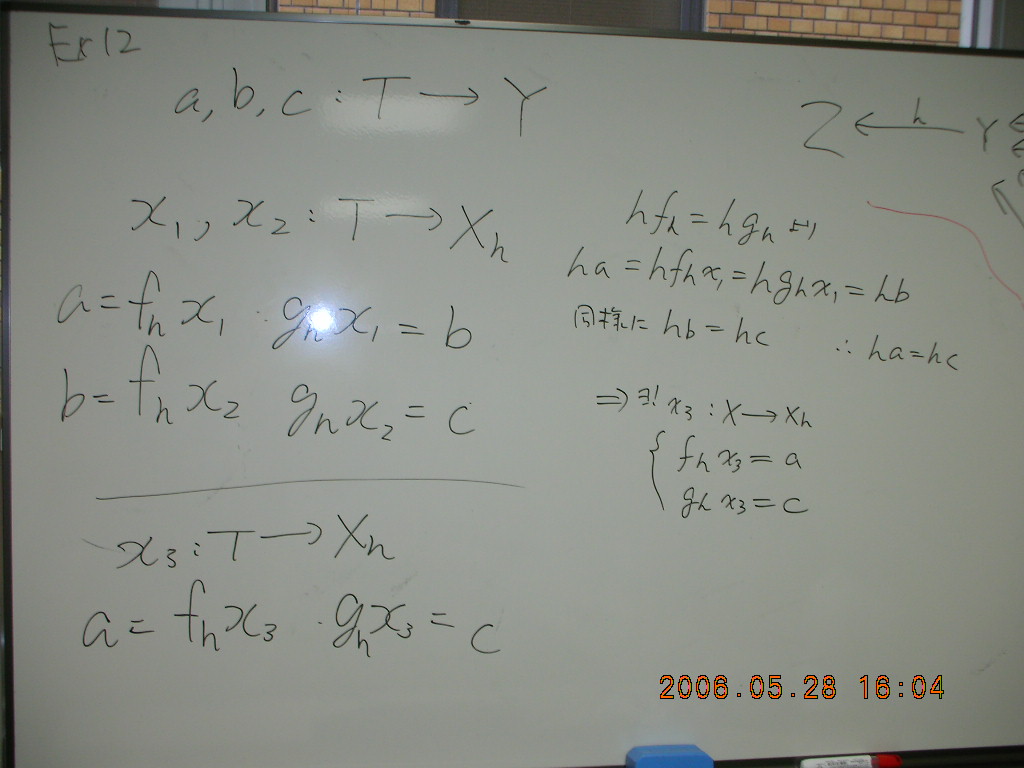 Ex 12
a, b, c : T → Y
x₁, x₂ : T → Xₕ
a = fₕ x₁ gₕ x₁ = b
b = fₕ x₂ gₕ x₂ = c
x₃ : T → Xₕ
a = fₕ x₃ . gₕ x₃ = c
Z ←h Y
h fₕ = h gₕ より
ha = h fₕ x₁ = h gₕ x₁ = hb
同様に hb = hc ∴ ha = hc
⇒ ∃! x₃ : X → Xₕ
{ fₕ x₃ = a
gₕ x₃ = c
2006.05.28 16:04